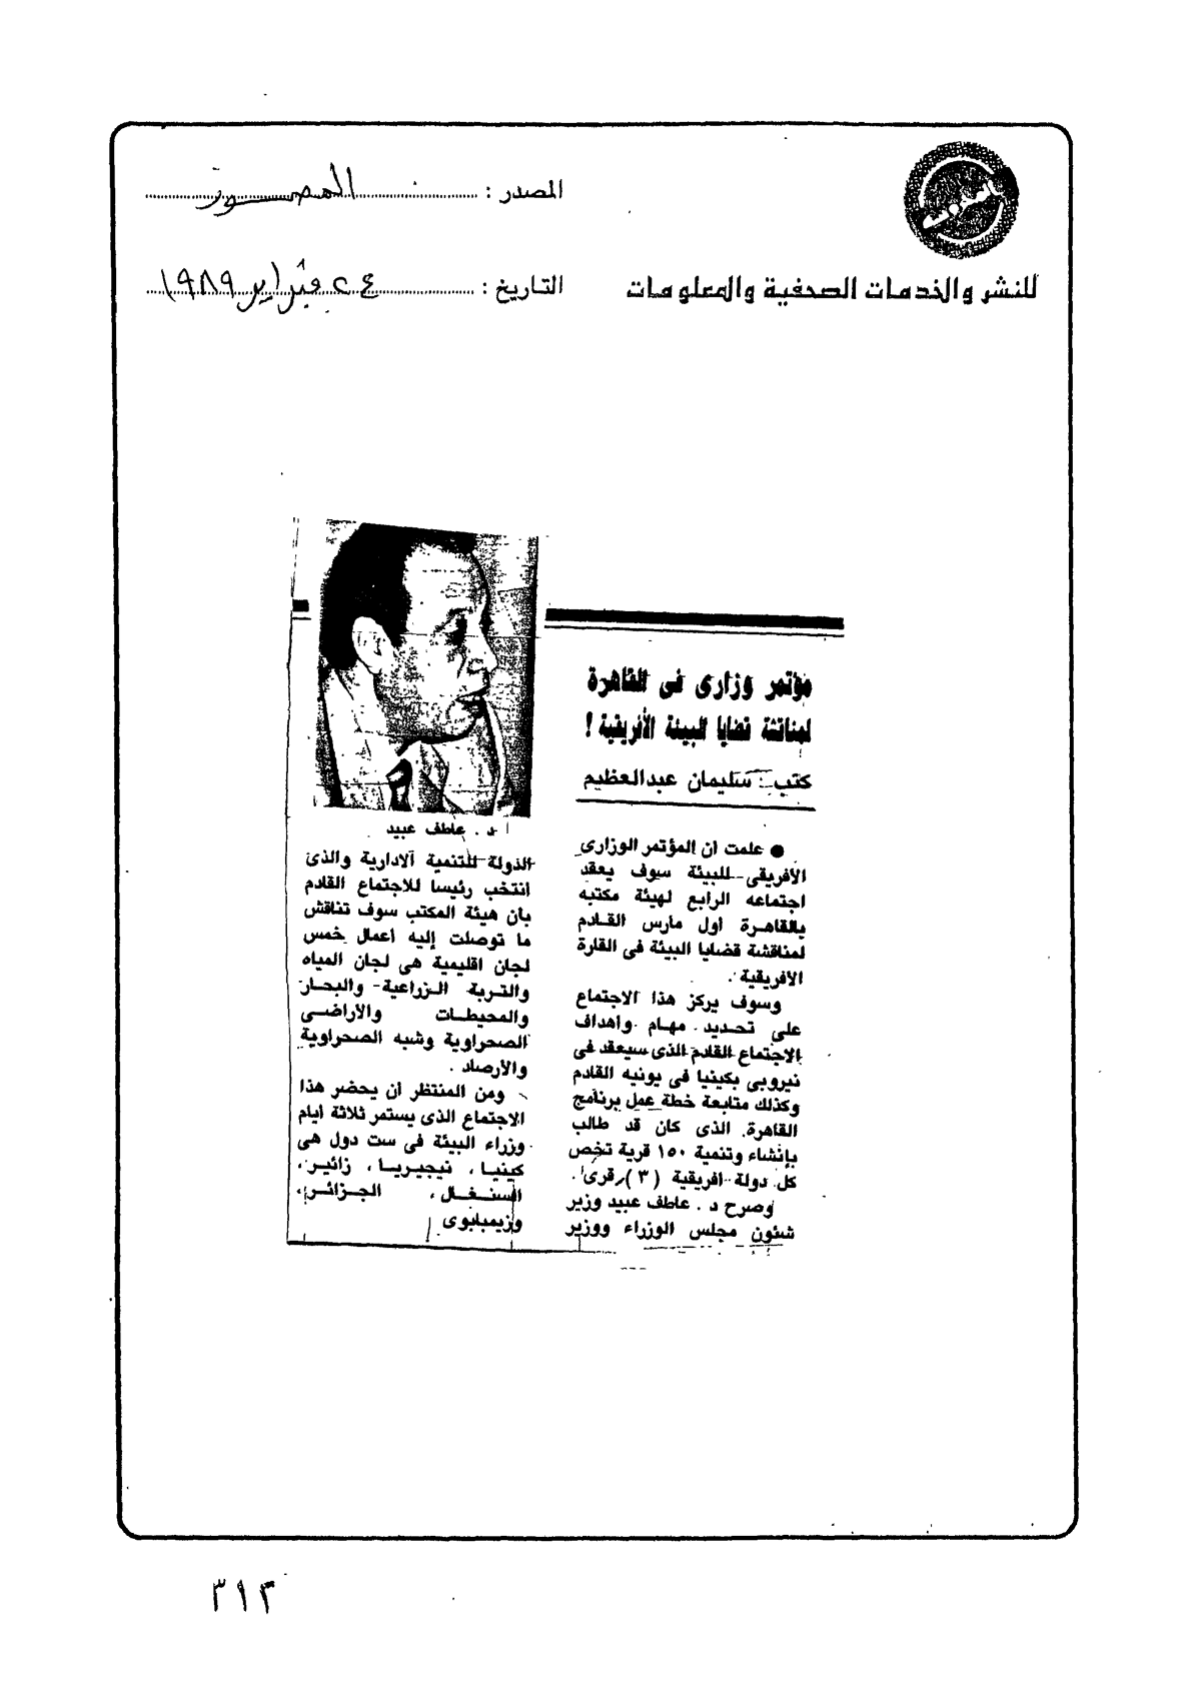 المصدر : المصور
للنشر والخدمات الصحفية والمعلومات
التاريخ : ٢٤ فبراير ١٩٨٩
مؤتمر وزارى فى القاهرة
لمناقشة قضايا البيئة الأفريقية !
كتب : سليمان عبدالعظيم
● علمت ان المؤتمر الوزارى
الأفريقى للبيئة سوف يعقد
اجتماعه الرابع لهيئة مكتبه
بالقاهرة اول مارس القادم
لمناقشة قضايا البيئة فى القارة
الافريقية .
وسوف يركز هذا الاجتماع
على تحديد مهام واهداف
الاجتماع القادم الذى سيعقد فى
نيروبى بكينيا فى يونيه القادم
وكذلك متابعة خطة عمل برنامج
القاهرة الذى كان قد طالب
بإنشاء وتنمية ١٥٠ قرية تخص
كل دولة افريقية (٣) قرى .
وصرح د . عاطف عبيد وزير
شئون مجلس الوزراء ووزير
د . عاطف عبيد
الدولة للتنمية الادارية والذى
انتخب رئيسا للاجتماع القادم
بان هيئة المكتب سوف تناقش
ما توصلت إليه أعمال خمس
لجان اقليمية هى لجان المياه
والتربة الزراعية والبحار
والمحيطات والأراضى
الصحراوية وشبه الصحراوية
والأرصاد .
ومن المنتظر ان يحضر هذا
الاجتماع الذى يستمر ثلاثة ايام
وزراء البيئة فى ست دول هى
كينيا ، نيجيريا ، زائير ،
السنغال ، الجزائر ،
وزيمبابوى .
٣١٣